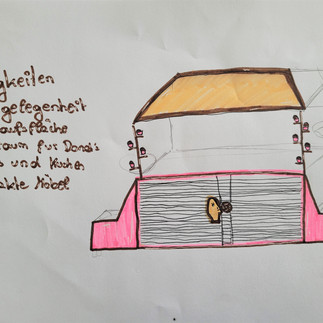 gkeiten
gelegenheit
aufsfläche
raum für Dona's
s und Kuchen
akte Möbel